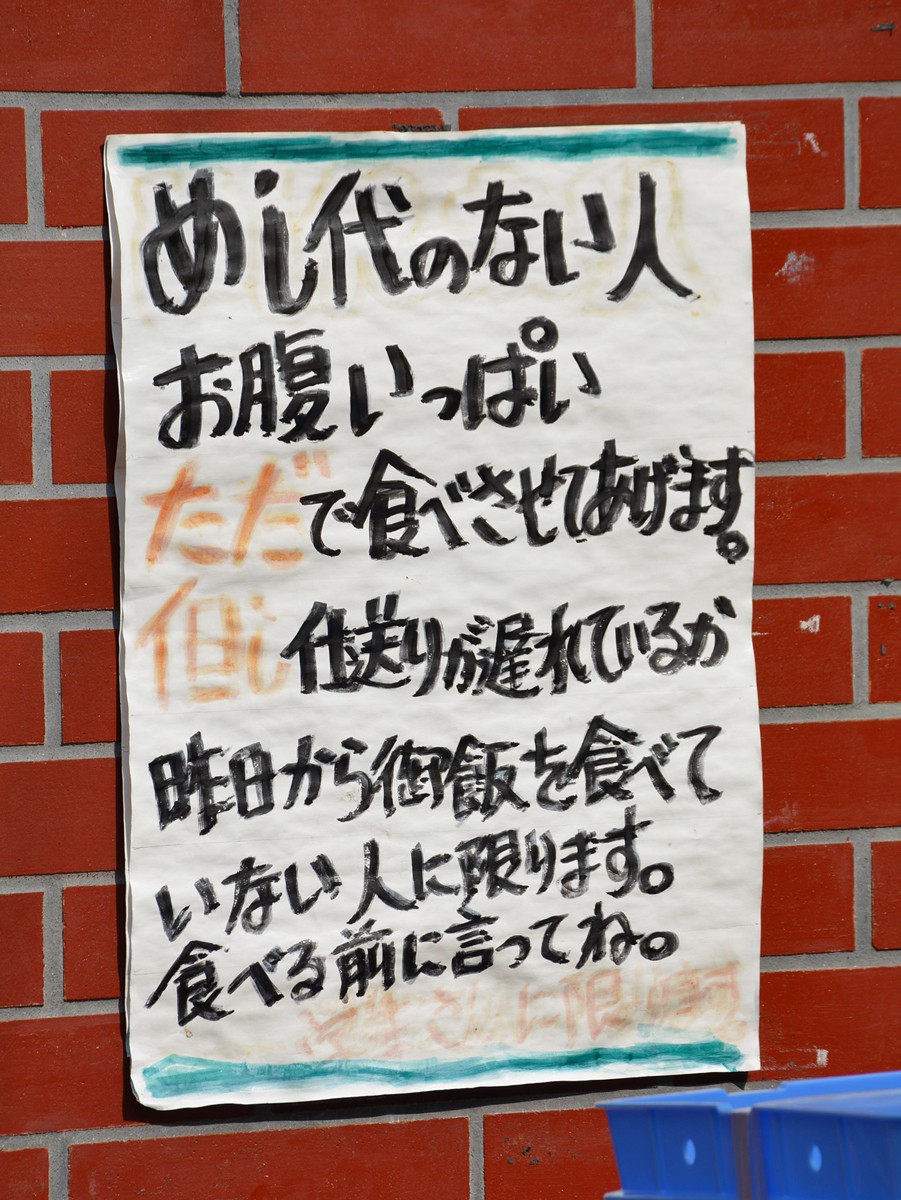 めし代のない人
お腹いっぱい
ただで食べさせてあげます。
但し仕送りが遅れているか
昨日から御飯を食べて
いない人に限ります。
食べる前に言ってね。
学生さんに限ります。